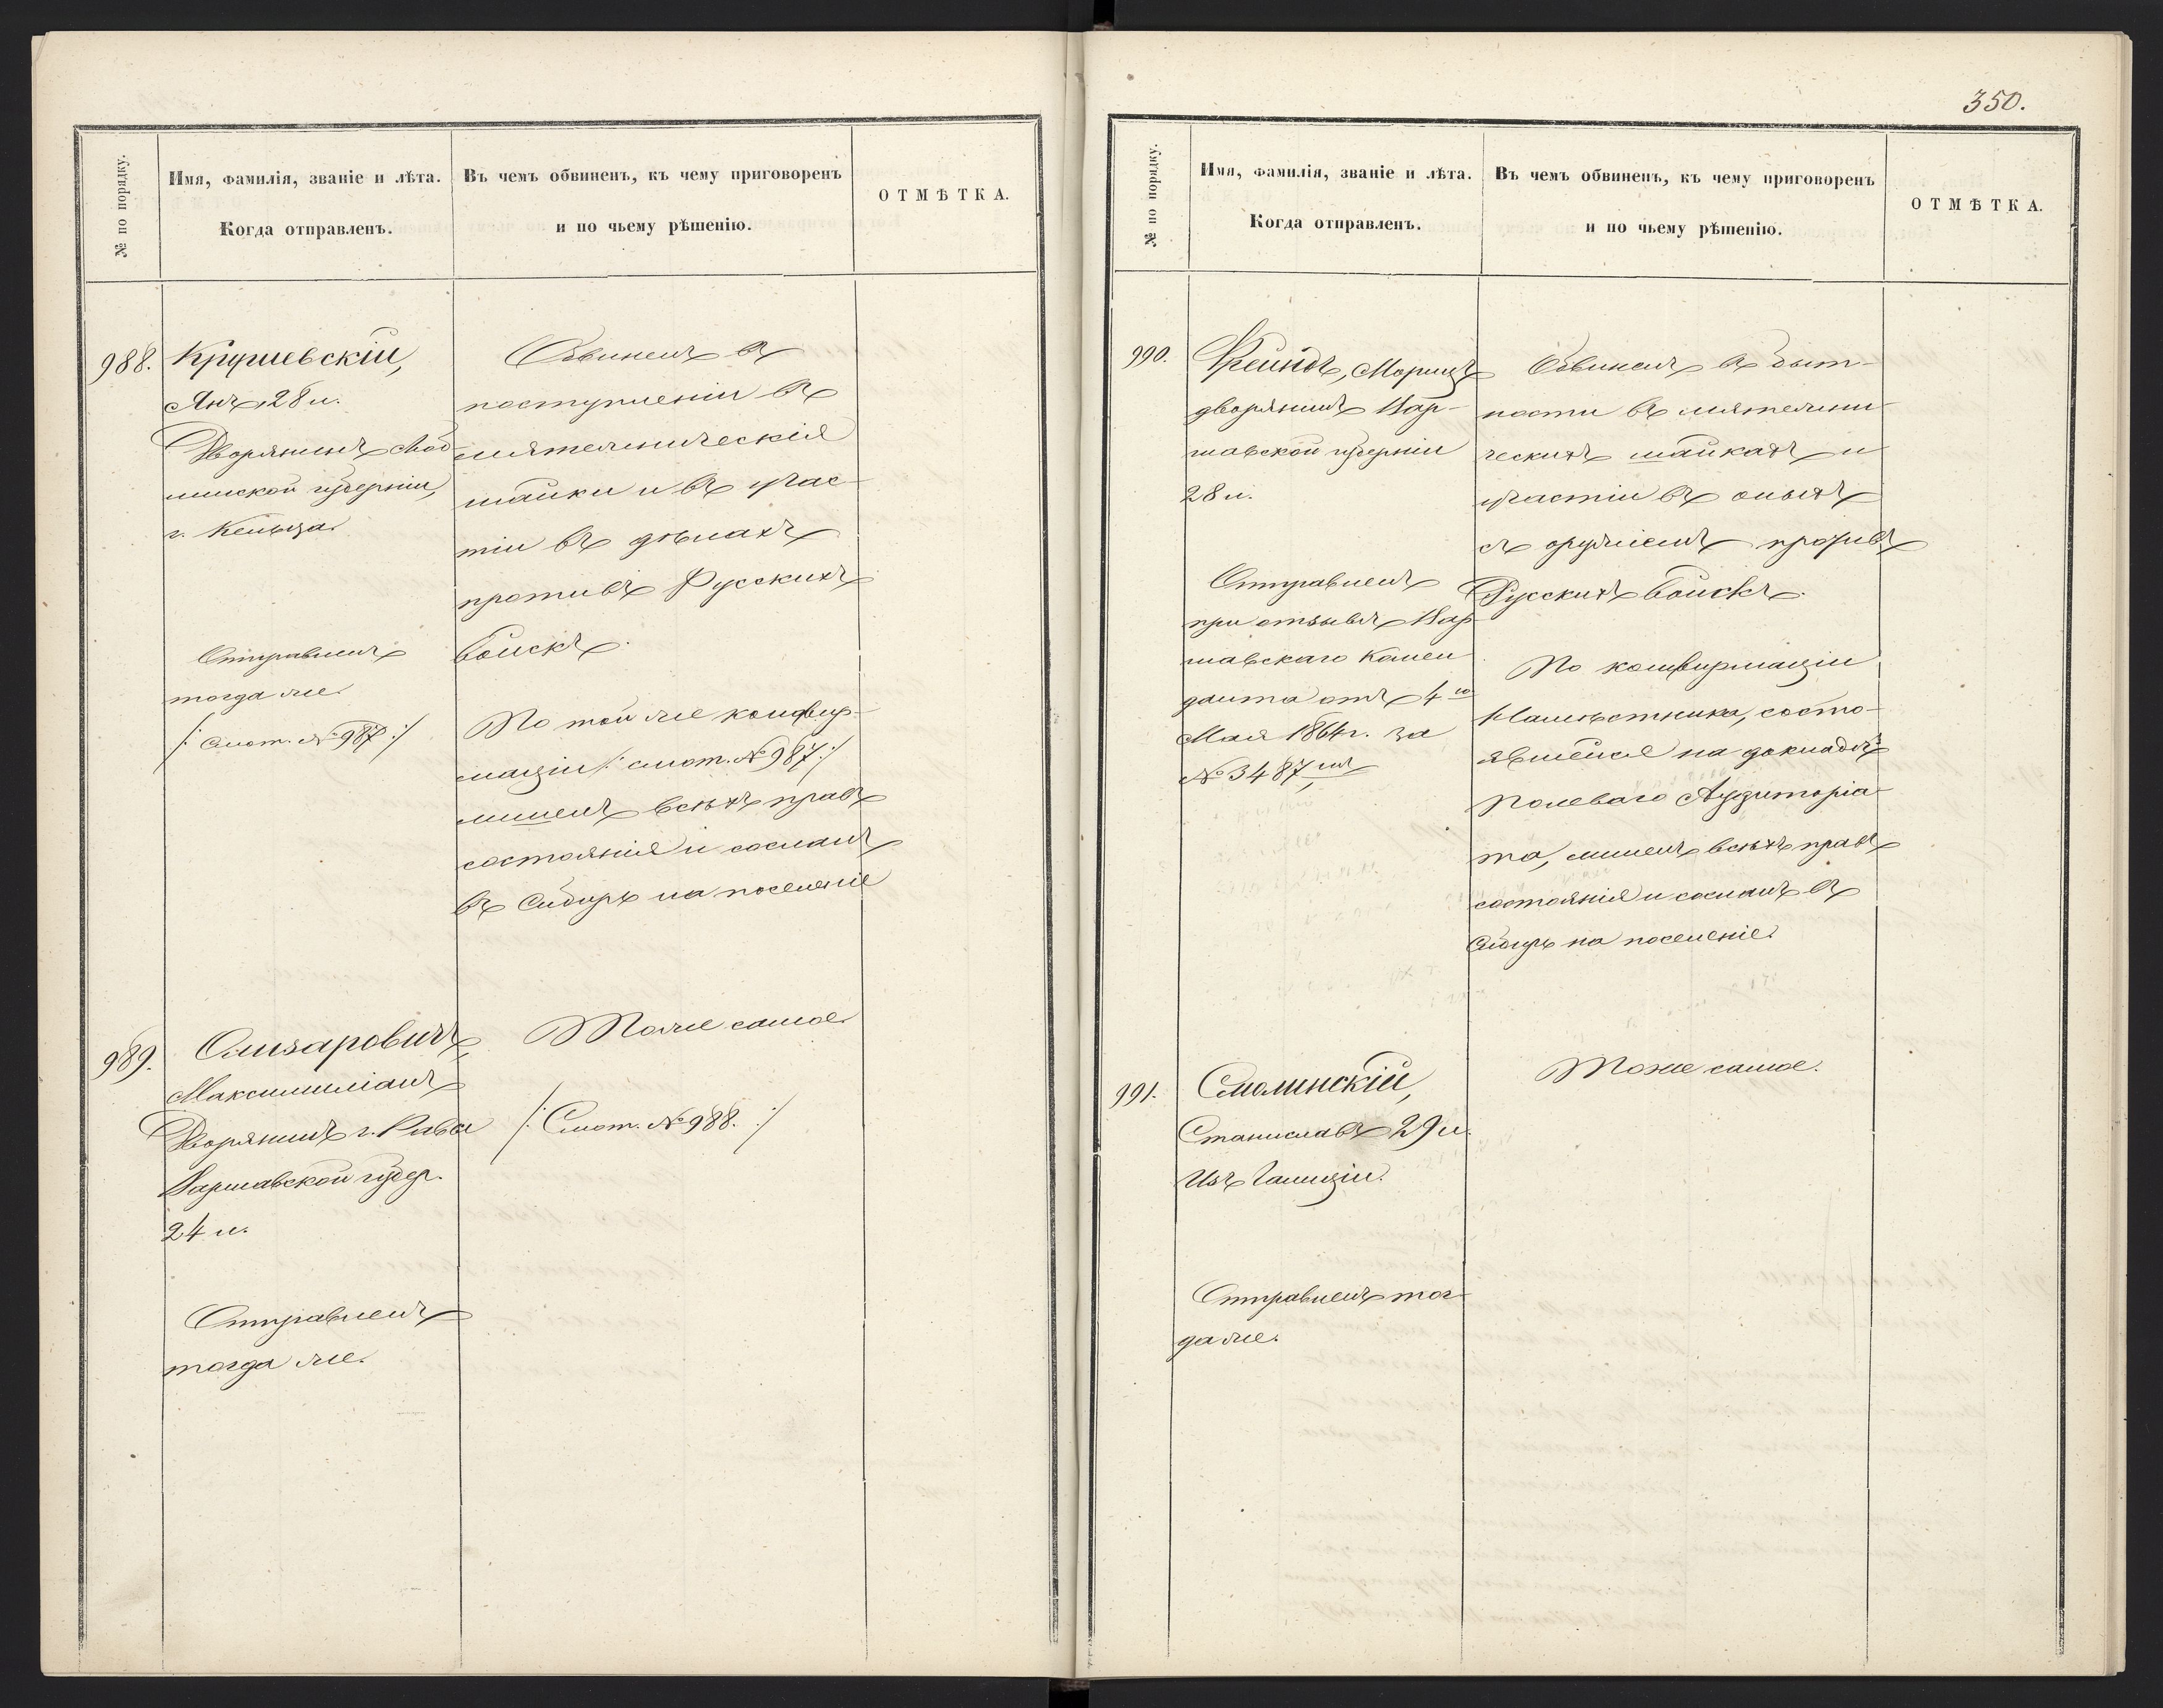 № по порядку.
Имя, фамилія, званіе и лѣта.
Когда отправленъ.
Въ чемъ обвиненъ, къ чему приговоренъ
и по чьему рѣшенію.
ОТМѢТКА.
988.
Крушевскій,
Янъ, 28 л.
Дворянинъ
губерніи,
г.
Отправленъ
тогда же.
/: Смот. № 987 :/
Обвиненъ въ
поступленіи въ
мятежническія
шайки и въ учас-
тіи въ дѣлахъ
противъ Русскихъ
войскъ.
По той же конфир-
маціи /: смот. № 987 :/
лишенъ всѣхъ правъ
состоянія и сосланъ
въ Сибирь на поселеніе
989.
Олизаровичъ,
Максимиліанъ
Дворянинъ г. Рава
Варшавской губер.
24 л.
Отправленъ
тогда же.
Тоже самое.
/: Смот. № 988. :/
350.
№ по порядку.
Имя, фамилія, званіе и лѣта.
Когда отправленъ.
Въ чемъ обвиненъ, къ чему приговоренъ
и по чьему рѣшенію.
ОТМѢТКА.
990.
Фрейндъ, Морицъ
дворянинъ Вар-
шавской губерніи
28 л.
Отправленъ
при отзывѣ Вар-
шавскаго Комен
данта отъ 4го
Мая 1864 г. за
№ 3487,мъ
Обвиненъ въ быт-
ности въ мятежни-
ческихъ шайкахъ и
участіи въ оныхъ
съ оружіемъ противъ
Русскихъ войскъ.
По конфирмаціи
Намѣстника, состо-
явшейся на докладѣ
Полеваго Аудиторіа-
та, лишенъ всѣхъ правъ
состоянія и сосланъ въ
Сибирь на поселеніе.
991.
Смолинскій,
Станиславъ 29 л.
Изъ Галиціи.
Отправленъ тог-
да же.
Тоже самое.